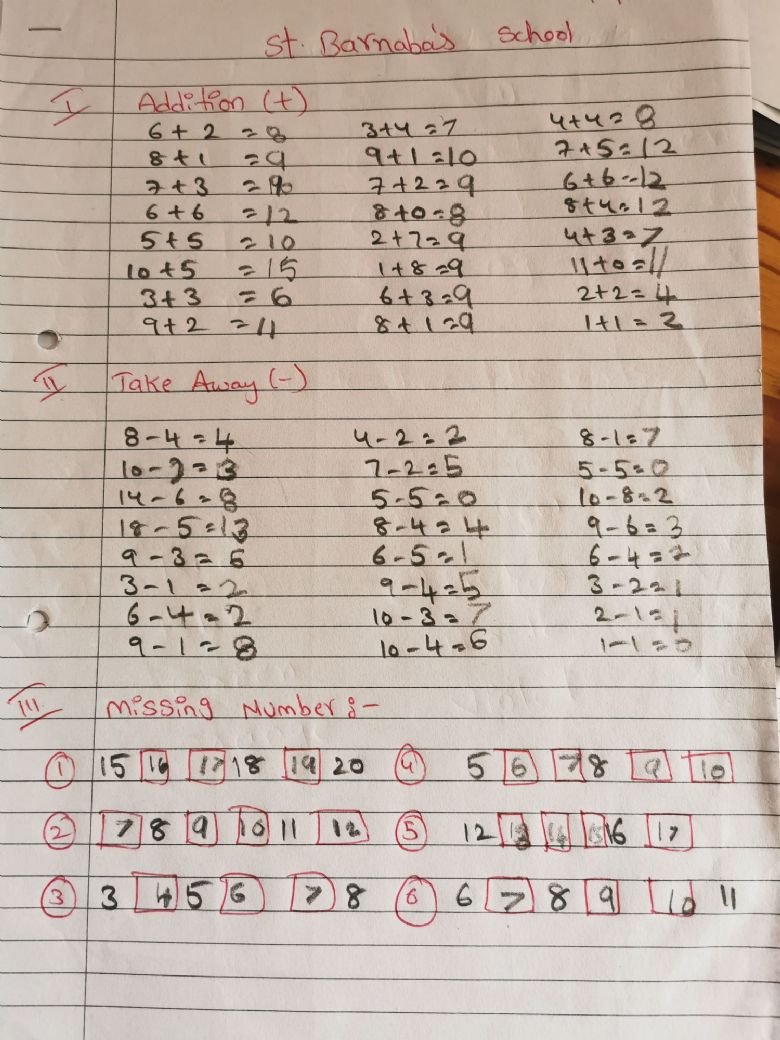 St. Barnaba's School
I Addition (+)
6 + 2 = 8 3+4 = 7 4+4 = 8
8 + 1 = 9 9 + 1 = 10 7 + 5 = 12
7 + 3 = 10 7 + 2 = 9 6 + 6 = 12
6 + 6 = 12 8 + 0 = 8 8 + 4 = 12
5 + 5 = 10 2 + 7 = 9 4 + 3 = 7
10 + 5 = 15 1 + 8 = 9 11 + 0 = 11
3 + 3 = 6 6 + 3 = 9 2 + 2 = 4
9 + 2 = 11 8 + 1 = 9 1 + 1 = 2
II Take Away (-)
8 - 4 = 4 4 - 2 = 2 8 - 1 = 7
10 - = 3 7 - 2 = 5 5 - 5 = 0
14 - 6 = 8 5 - 5 = 0 10 - 8 = 2
18 - 5 = 13 8 - 4 = 4 9 - 6 = 3
9 - 3 = 6 - 5 = 1 6 - 4 = 2
3 - 1 = 2 9 - 4 = 5 3 - 2 = 1
6 - 4 = 2 10 - 3 = 7 2 - 1 = 1
9 - 1 = 8 10 - 4 = 6 1 - 1 = 0
III Missing Number :-
1 15 16 17 18 19 20 4 5 6 7 8 9 10
2 7 8 9 10 11 12 5 12 13 14 15 16 17
3 3 4 5 6 7 8 6 6 7 8 9 10 11